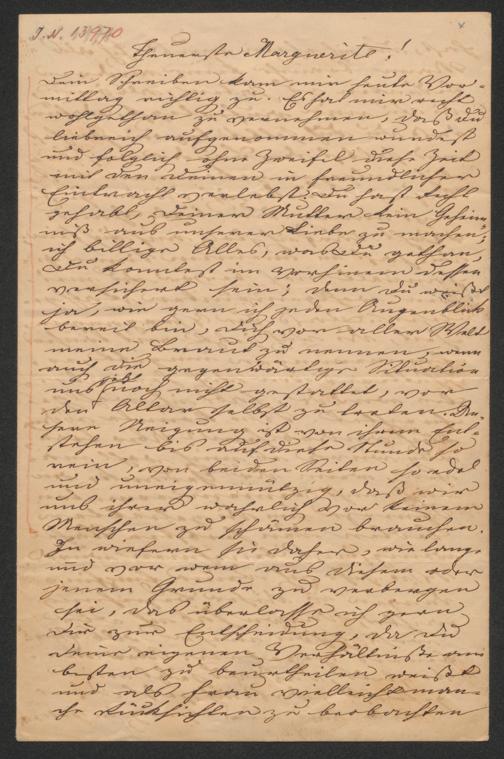 J. N. 13970
Theuerste Marguerite!
Dein Schreiben kam mir heute Vor-
mittag richtig zu. Es hat mir recht
wohlgethan zu vernehmen, daß du
liebreich aufgenommen wurdest
und folglich ohne Zweifel diese Zeit
mit den Deinen in freundlicher
Eintracht verlebst. Du hast Recht
gehabt, Deiner Mutter kein Geheim-
niß aus unserer Liebe zu machen;
ich billige Alles, was Du gethan,
Du konntest im vorhinein dessen
versichert sein; denn Du weißt
ja, wie gern ich jeden Augenblick
bereit bin, Dich vor aller Welt
meine Braut zu nennen, wenn
auch die gegenwärtige Situation
uns noch nicht gestattet, vor
den Altar selbst zu treten. Un-
sere Neigung ist von ihrem Ent-
stehen bis auf diese Stunde so
rein, von beiden Seiten so edel
und uneigennützig, daß wir
uns ihrer wahrlich vor keinem
Menschen zu schämen brauchen.
In wiefern sie daher, wie lange
und vor wem aus diesem oder
jenem Grunde zu verbergen
sei, das überlasse ich gern
Dir zur Entscheidung, da Du
Deine eigenen Verhältnisse am
besten zu beurtheilen weißt
und als Frau vielleicht man-
che Rücksichten zu beobachten